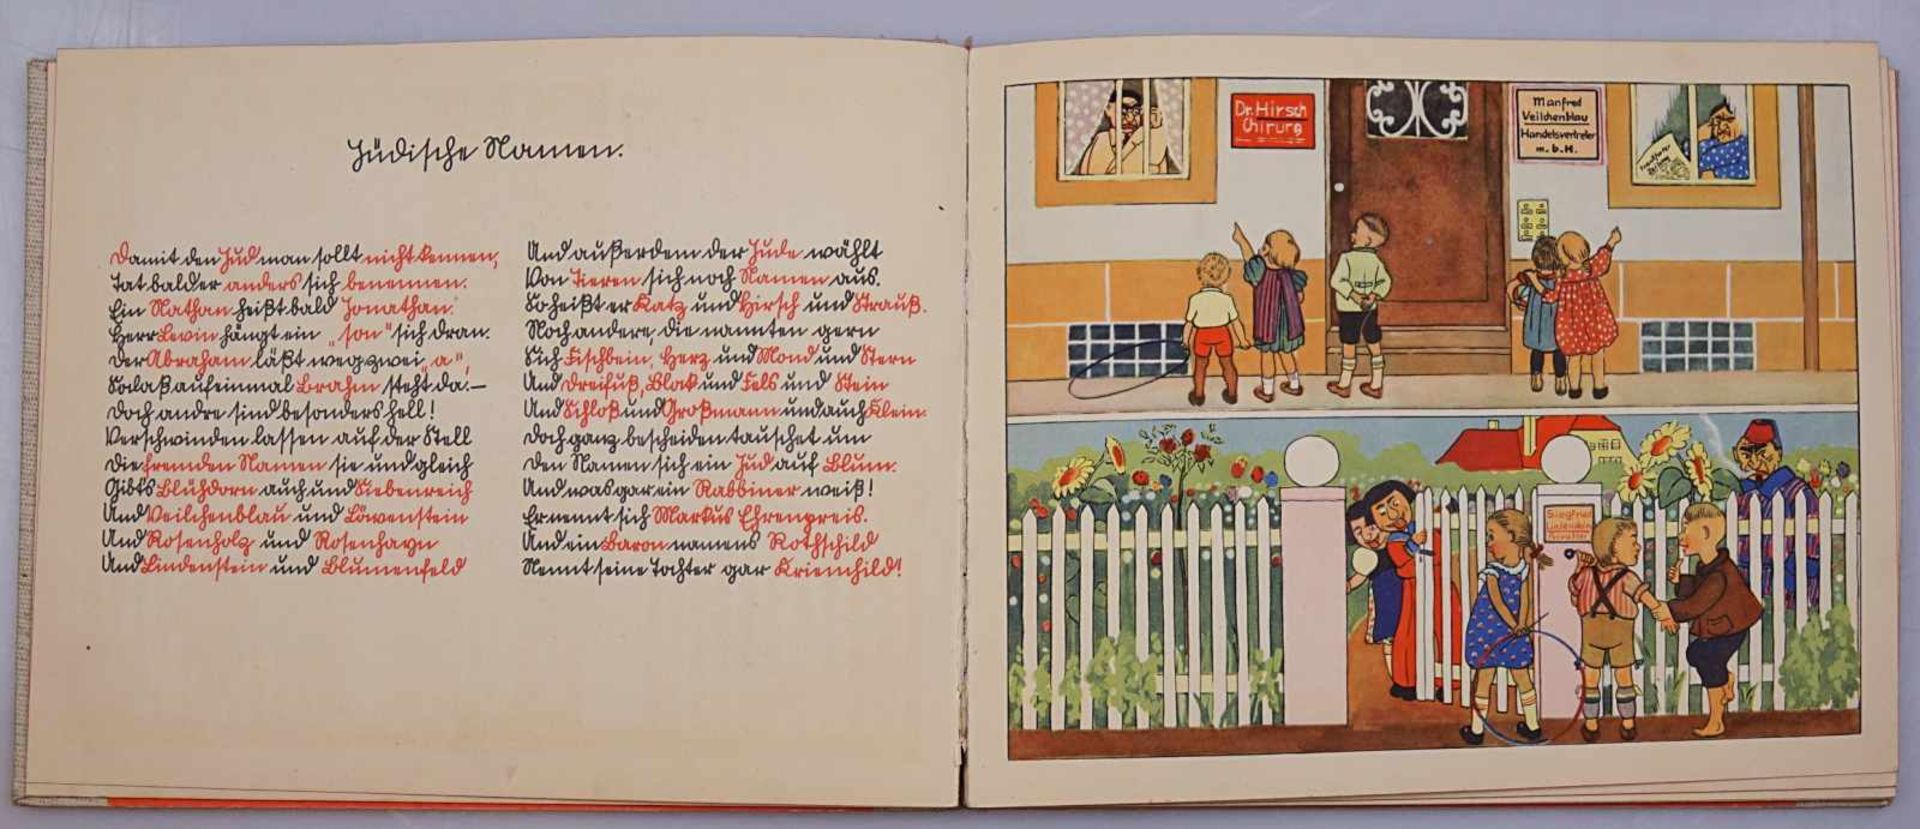 Jüdische Namen.
Damit den Jud man sollt nicht kennen,
Tat bald er anders sich benennen.
Ein Nathan heißt bald Jonathan.
Herr Levin hängt ein „son" sich dran.
Der Abraham läßt weg zwei „a",
Sodaß auf einmal Brahm steht da.—
Doch andre sind besonders hell!
Verschwinden lassen auf der Stell
Die fremden Namen sie und gleich
Gibt's Blühdorn auch und Siebenreich
Und Veilchenblau und Löwenstein
Und Rosenholz und Rosenhayn
Und Lindenstein und Blumenfeld
Und außerdem der Jude wählt
Von Tieren sich noch Namen aus.
So heißt er Katz und Hirsch und Strauß.
Noch andere, die nannten gern
Sich Fischbein, Herz und Mond und Stern
Und Dreifuß, Blok und Fels und Stein
Und Schloß und Großmann und auch Klein.
Doch ganz bescheiden tauschet um
Den Namen sich ein Jud auf Blum.
Und was gar ein Rabbiner weiß!
Er nennt sich Markus Ehrenpreis.
Und ein Baron namens Rothschild
Nennt seine Tochter gar Kriemhild!
Dr. Hirsch
Chirurg
Manfred
Veilchenblau
Handelsvertreter
m.b.H.
Frankfurter
Siegfried